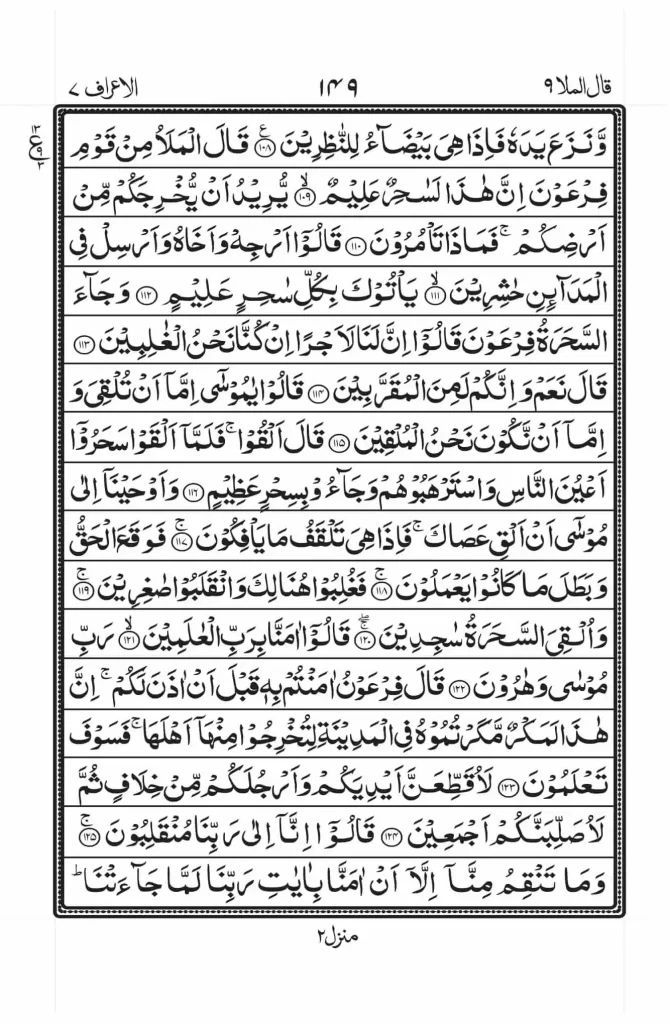 قال الملا ۹
۱۴۹
الاعراف ۷
وَّنَزَعَ يَدَهٗ فَاِذَا هِىَ بَيۡضَآءُ لِلنّٰظِرِيۡنَ ﴿۱۰۸﴾ قَالَ الۡمَلَاُ مِنۡ قَوۡمِ
فِرۡعَوۡنَ اِنَّ هٰذَا لَسٰحِرٌ عَلِيۡمٌ ﴿۱۰۹﴾ۙ يُّرِيۡدُ اَنۡ يُّخۡرِجَكُمۡ مِّنۡ
اَرۡضِكُمۡ‌ۚ فَمَاذَا تَاۡمُرُوۡنَ ﴿۱۱۰﴾ قَالُوۡۤا اَرۡجِهۡ وَاَخَاهُ وَاَرۡسِلۡ فِى
الۡمَدَآٮِٕنِ حٰشِرِيۡنَ ﴿۱۱۱﴾ۙ يَاۡتُوۡكَ بِكُلِّ سٰحِرٍ عَلِيۡمٍ ﴿۱۱۲﴾ وَجَآءَ
السَّحَرَةُ فِرۡعَوۡنَ قَالُوۡۤا اِنَّ لَـنَا لَاَجۡرًا اِنۡ كُنَّا نَحۡنُ الۡغٰلِبِيۡنَ ﴿۱۱۳﴾
قَالَ نَعَمۡ وَاِنَّكُمۡ لَمِنَ الۡمُقَرَّبِيۡنَ ﴿۱۱۴﴾ قَالُوۡا يٰمُوۡسٰٓى اِمَّاۤ اَنۡ تُلۡقِىَ وَ
اِمَّاۤ اَنۡ نَّكُوۡنَ نَحۡنُ الۡمُلۡقِيۡنَ ﴿۱۱۵﴾ قَالَ اَلۡقُوۡا‌ ۚ فَلَمَّاۤ اَلۡقَوۡا سَحَرُوۡۤا
اَعۡيُنَ النَّاسِ وَاسۡتَرۡهَبُوۡهُمۡ وَجَآءُوۡ بِسِحۡرٍ عَظِيۡمٍ ﴿۱۱۶﴾ وَاَوۡحَيۡنَاۤ اِلٰى
مُوۡسٰٓى اَنۡ اَلۡقِ عَصَاكَ‌ ۚ فَاِذَا هِىَ تَلۡقَفُ مَا يَاۡفِكُوۡنَ ﴿۱۱۷﴾ۚ فَوَقَعَ الۡحَقُّ
وَبَطَلَ مَا كَانُوۡا يَعۡمَلُوۡنَ ﴿۱۱۸﴾ۚ فَغُلِبُوۡا هُنَالِكَ وَانْقَلَبُوۡا صٰغِرِيۡنَ ﴿۱۱۹﴾ۚ
وَاُلۡقِىَ السَّحَرَةُ سٰجِدِيۡنَ ﴿۱۲۰﴾ قَالُوۡۤا اٰمَنَّا بِرَبِّ الۡعٰلَمِيۡنَ ﴿۱۲۱﴾ۙ رَبِّ
مُوۡسٰى وَهٰرُوۡنَ ﴿۱۲۲﴾ قَالَ فِرۡعَوۡنُ اٰمَنۡتُمۡ بِهٖ قَبۡلَ اَنۡ اٰذَنَ لَـكُمۡ‌ۚ اِنَّ
هٰذَا لَمَكۡرٌ مَّكَرۡتُمُوۡهُ فِى الۡمَدِيۡنَةِ لِتُخۡرِجُوۡا مِنۡهَاۤ اَهۡلَهَا‌ۚ فَسَوۡفَ
تَعۡلَمُوۡنَ ﴿۱۲۳﴾ لَاُقَطِّعَنَّ اَيۡدِيَكُمۡ وَاَرۡجُلَكُمۡ مِّنۡ خِلَافٍ ثُمَّ
لَاُصَلِّبَنَّكُمۡ اَجۡمَعِيۡنَ ﴿۱۲۴﴾ قَالُوۡۤا اِنَّاۤ اِلٰى رَبِّنَا مُنۡقَلِبُوۡنَ ﴿۱۲۵﴾ۚ
وَمَا تَنۡقِمُ مِنَّاۤ اِلَّاۤ اَنۡ اٰمَنَّا بِاٰيٰتِ رَبِّنَا لَمَّا جَآءَتۡنَا‌ ؕ
منزل ۲